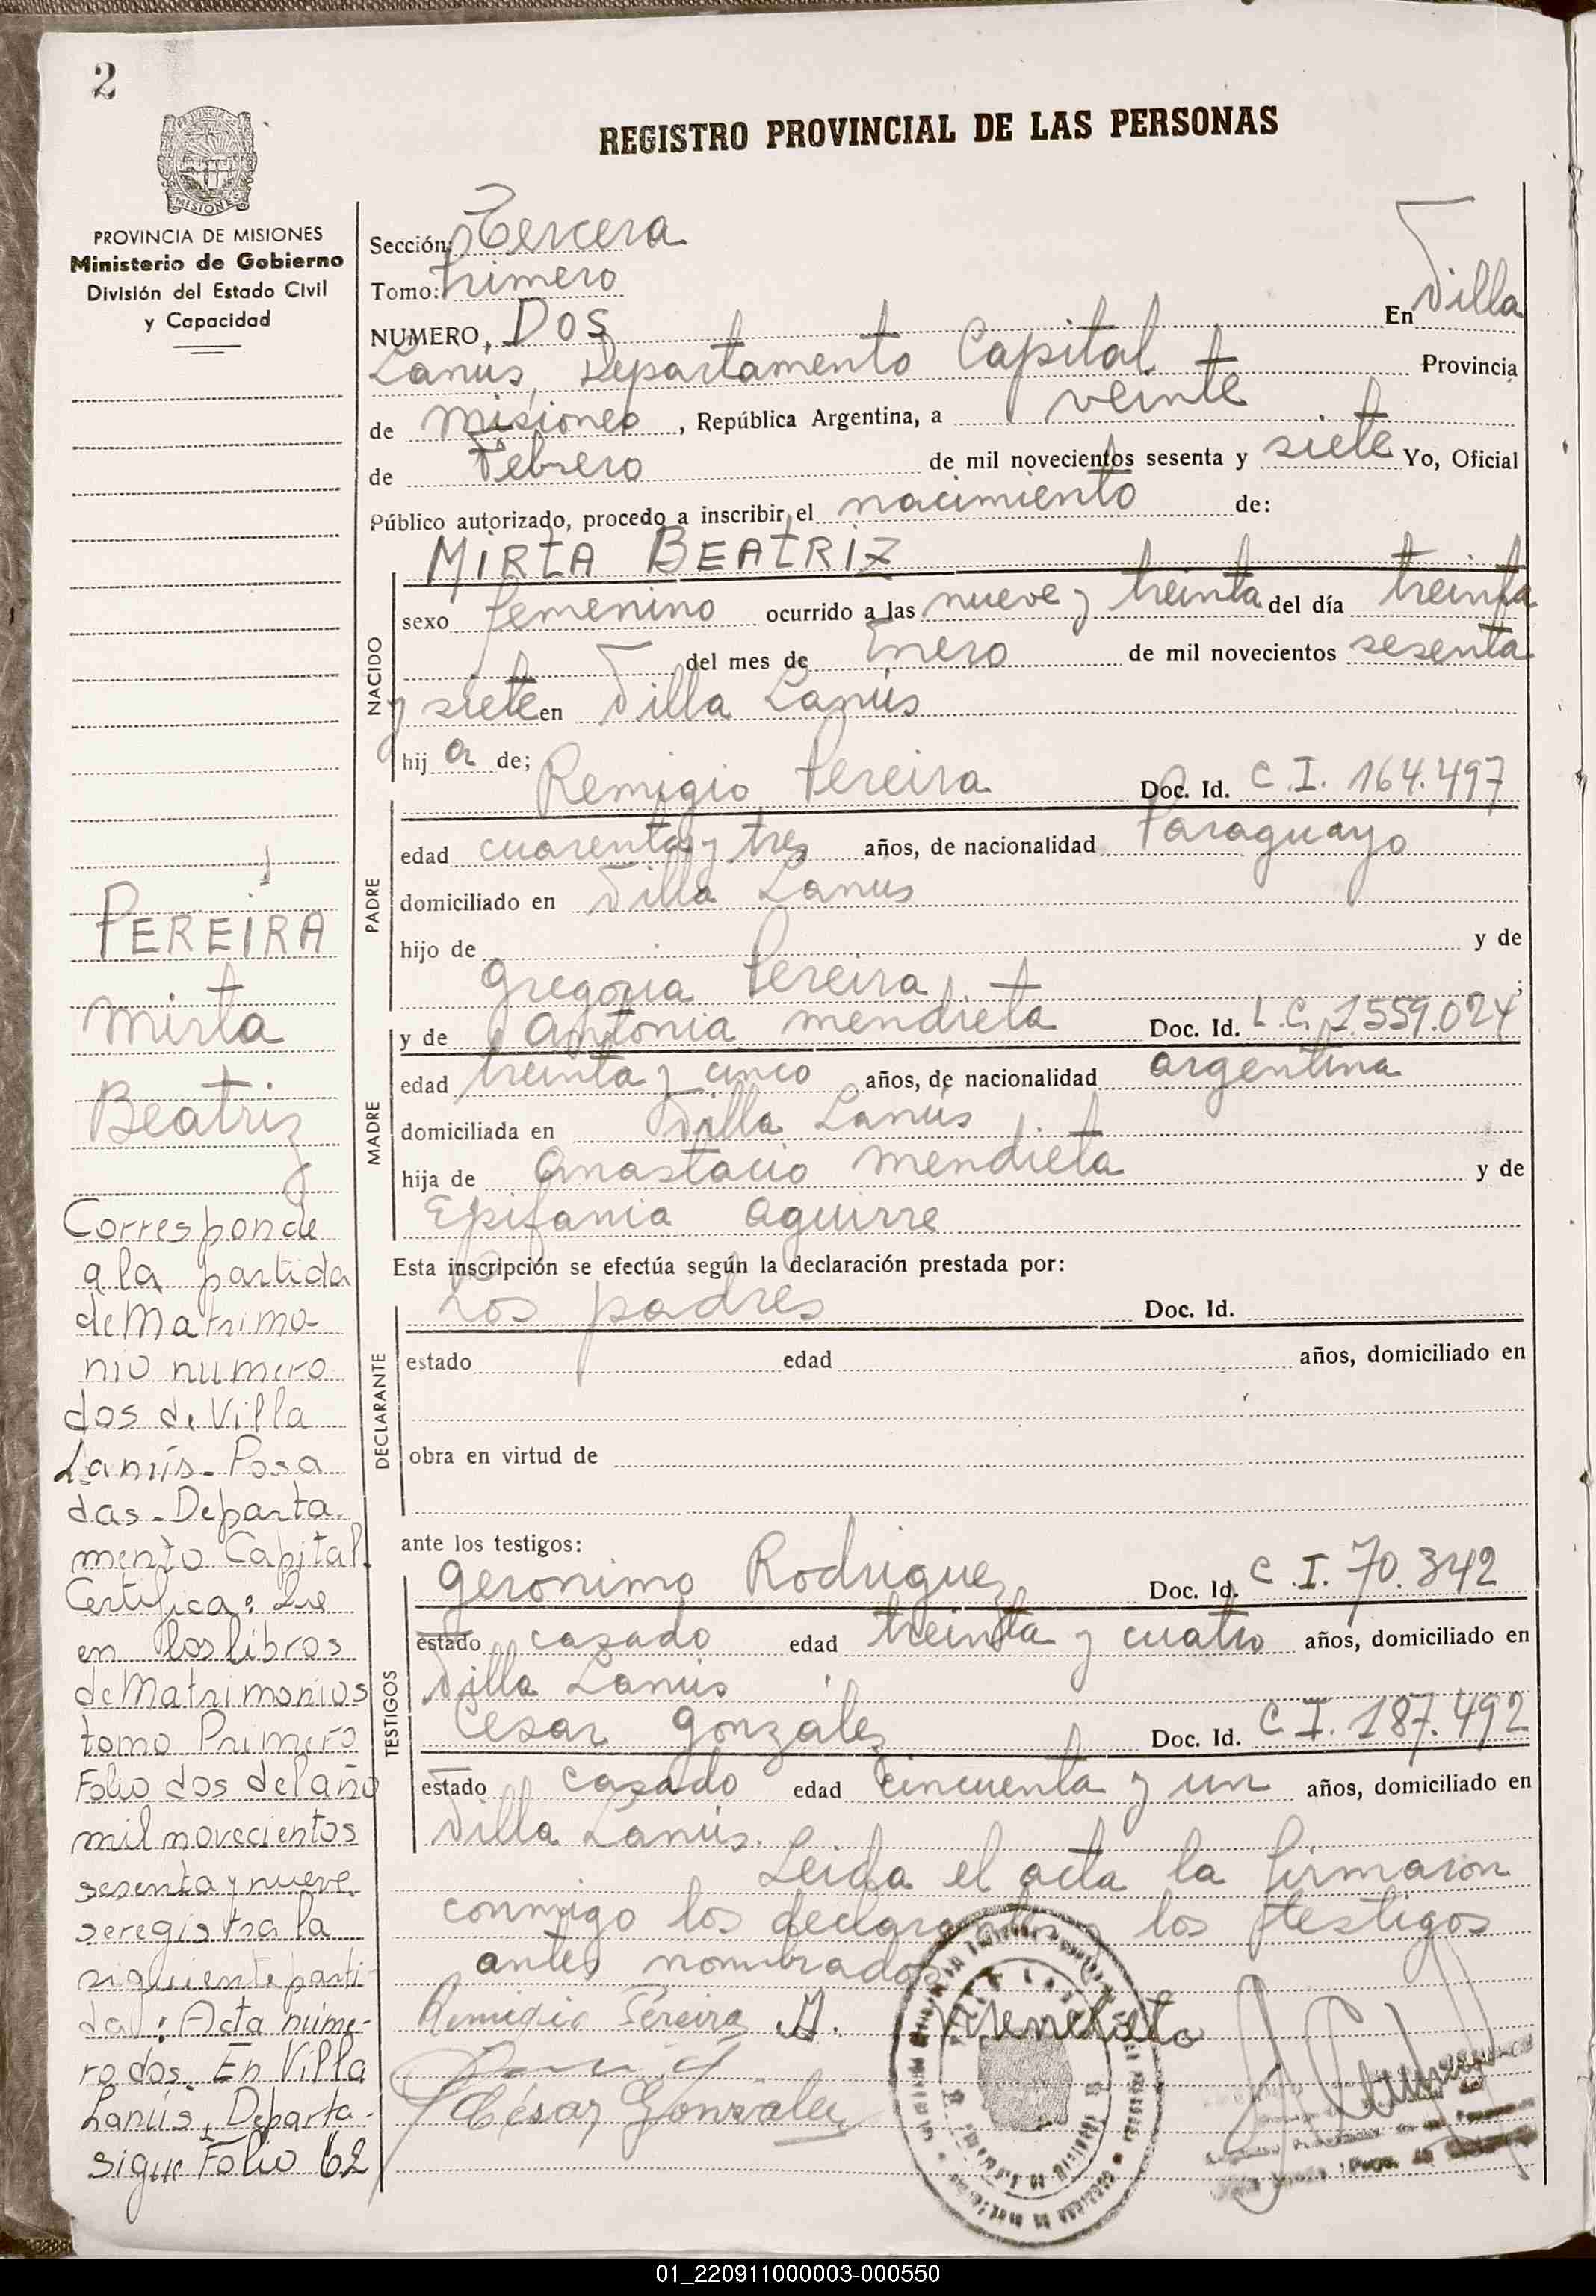 2
REGISTRO PROVINCIAL DE LAS PERSONAS
MISIONES
PROVINCIA DE MISIONES
Ministerio de Gobierno
División del Estado Civil
y Capacidad
Sección: Tercera
Tomo: Primero
NUMERO, DOS En Villa
Lanús, Departamento Capital Provincia
de Misiones, República Argentina, a veinte
de Febrero de mil novecientos sesenta y siete Yo, Oficial
Público autorizado, procedo a inscribir el nacimiento de:
MIRTA BEATRIZ
NACIDO
sexo femenino ocurrido a las nueve y treinta del día treinta
del mes de Enero de mil novecientos sesenta
y siete en Villa Lanús
hij a de;
Remigio Pereira Doc. Id. C.I. 164.497
PADRE
edad cuarenta y tres años, de nacionalidad Paraguayo
domiciliado en Villa Lanus
hijo de y de
Gregoria Pereira ;
y de Antonia Mendieta Doc. Id. L.C. 1.559.024
MADRE
edad treinta y cinco años, de nacionalidad argentina
domiciliada en Villa Lanús
hija de Anastacio Mendieta y de
Epifania Aguirre
Esta inscripción se efectúa según la declaración prestada por:
Los padres Doc. Id.
DECLARANTE
estado edad años, domiciliado en
obra en virtud de
ante los testigos:
Geronimo Rodriguez Doc. Id. C.I. 70.342
TESTIGOS
estado casado edad treinta y cuatro años, domiciliado en
Villa Lanús
Cesar Gonzalez Doc. Id. C.I. 187.492
estado casado edad cincuenta y un años, domiciliado en
Villa Lanús.
Leida el acta la firmaron
conmigo los declarantes y los testigos
antes nombrados
Remigio Pereira A. Mendieta
César Gonzalez
PEREIRA
Mirta
Beatriz
Corresponde
a la partida
de Matrimo-
nio numero
dos de Villa
Lanús - Posa
das - Departa-
mento Capital.
Certifica: Que
en los libros
de Matrimonios
tomo Primero
Folio dos del año
mil novecientos
sesenta y nueve
se registra la
siguiente parti-
da: Acta núme-
ro dos. En Villa
Lanús, Departa-
sigue Folio 62
01_220911000003-000550